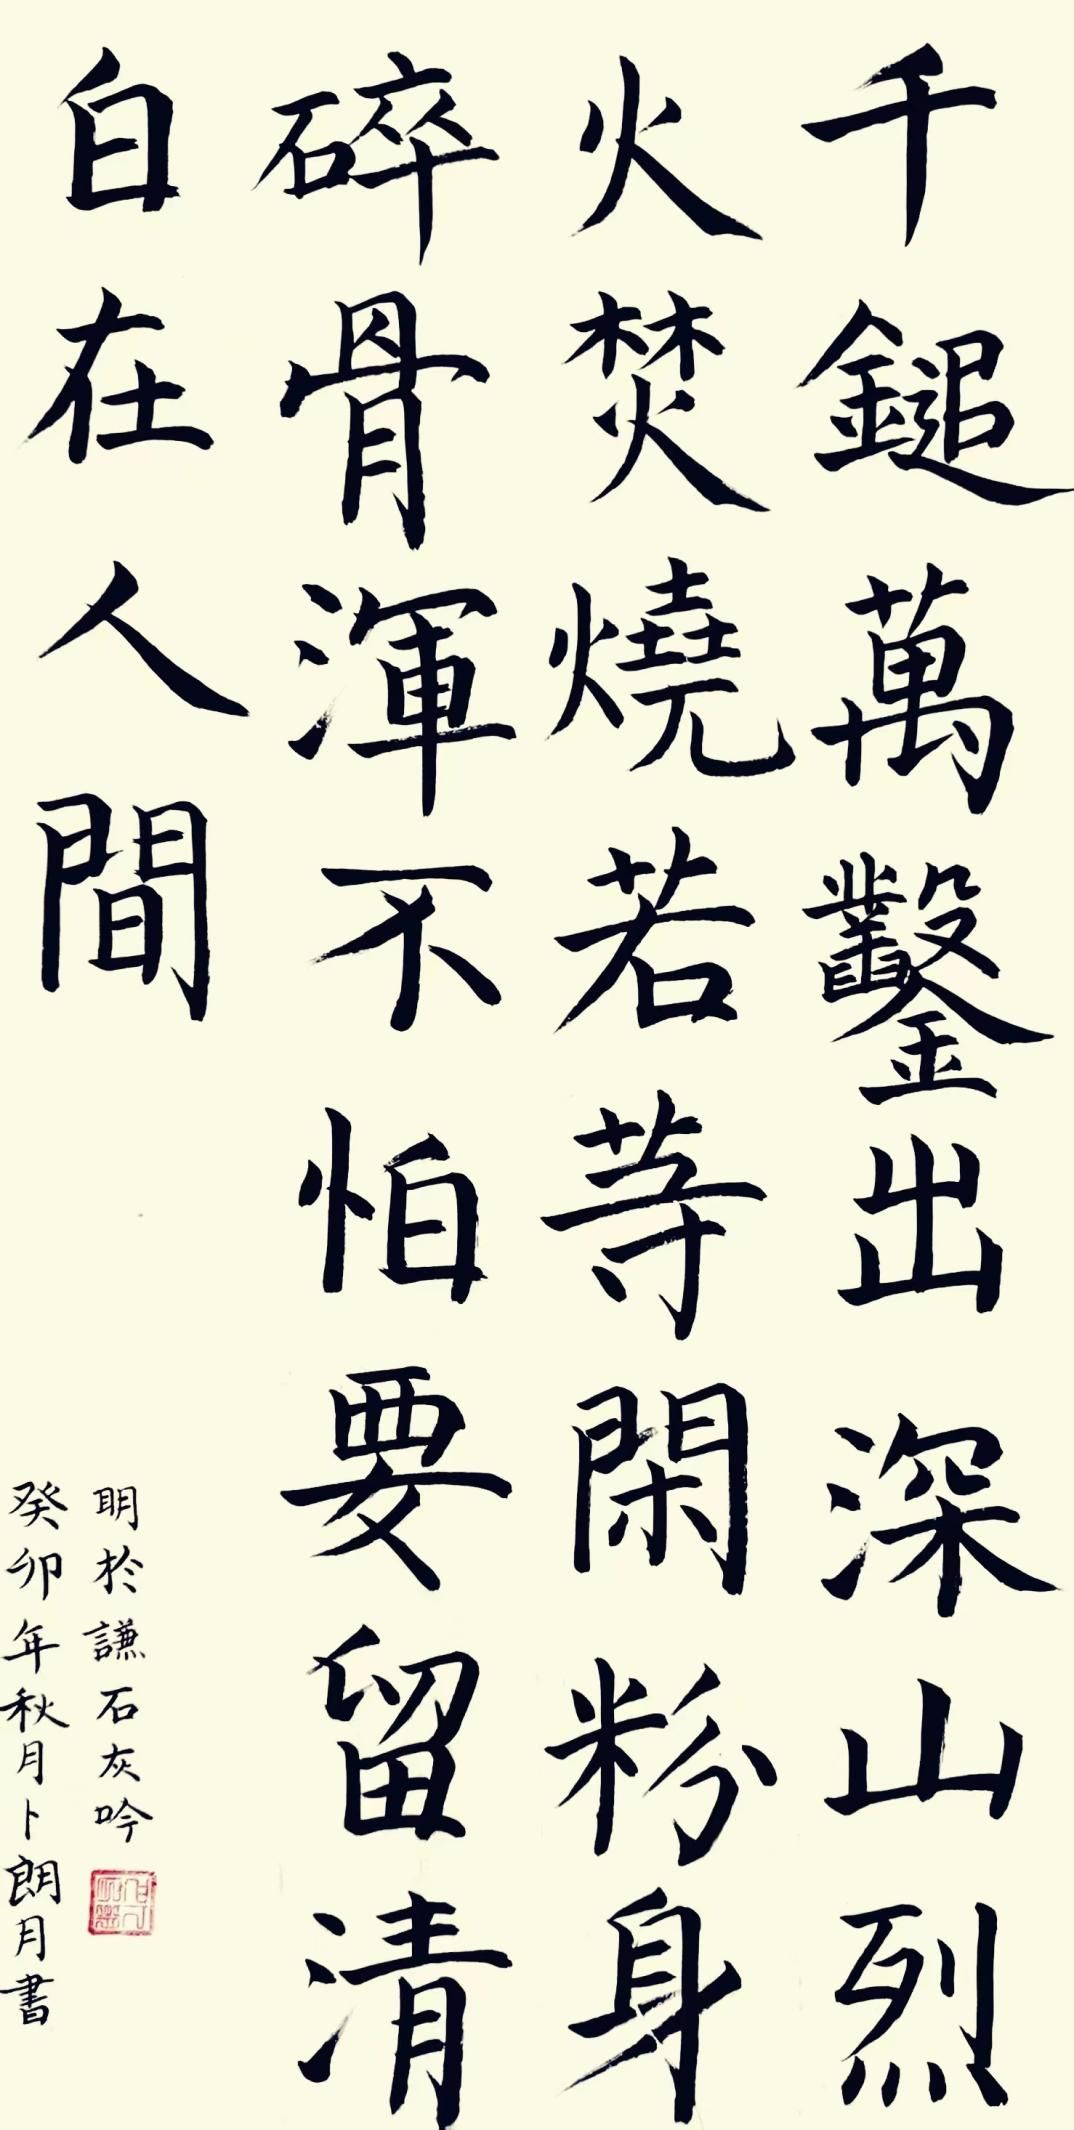 千鎚萬鑿出深山烈
火焚燒若䓁閑粉身
碎骨渾不怕要留清
白在人間
明於謙石灰吟
癸卯年秋月卜朗月書